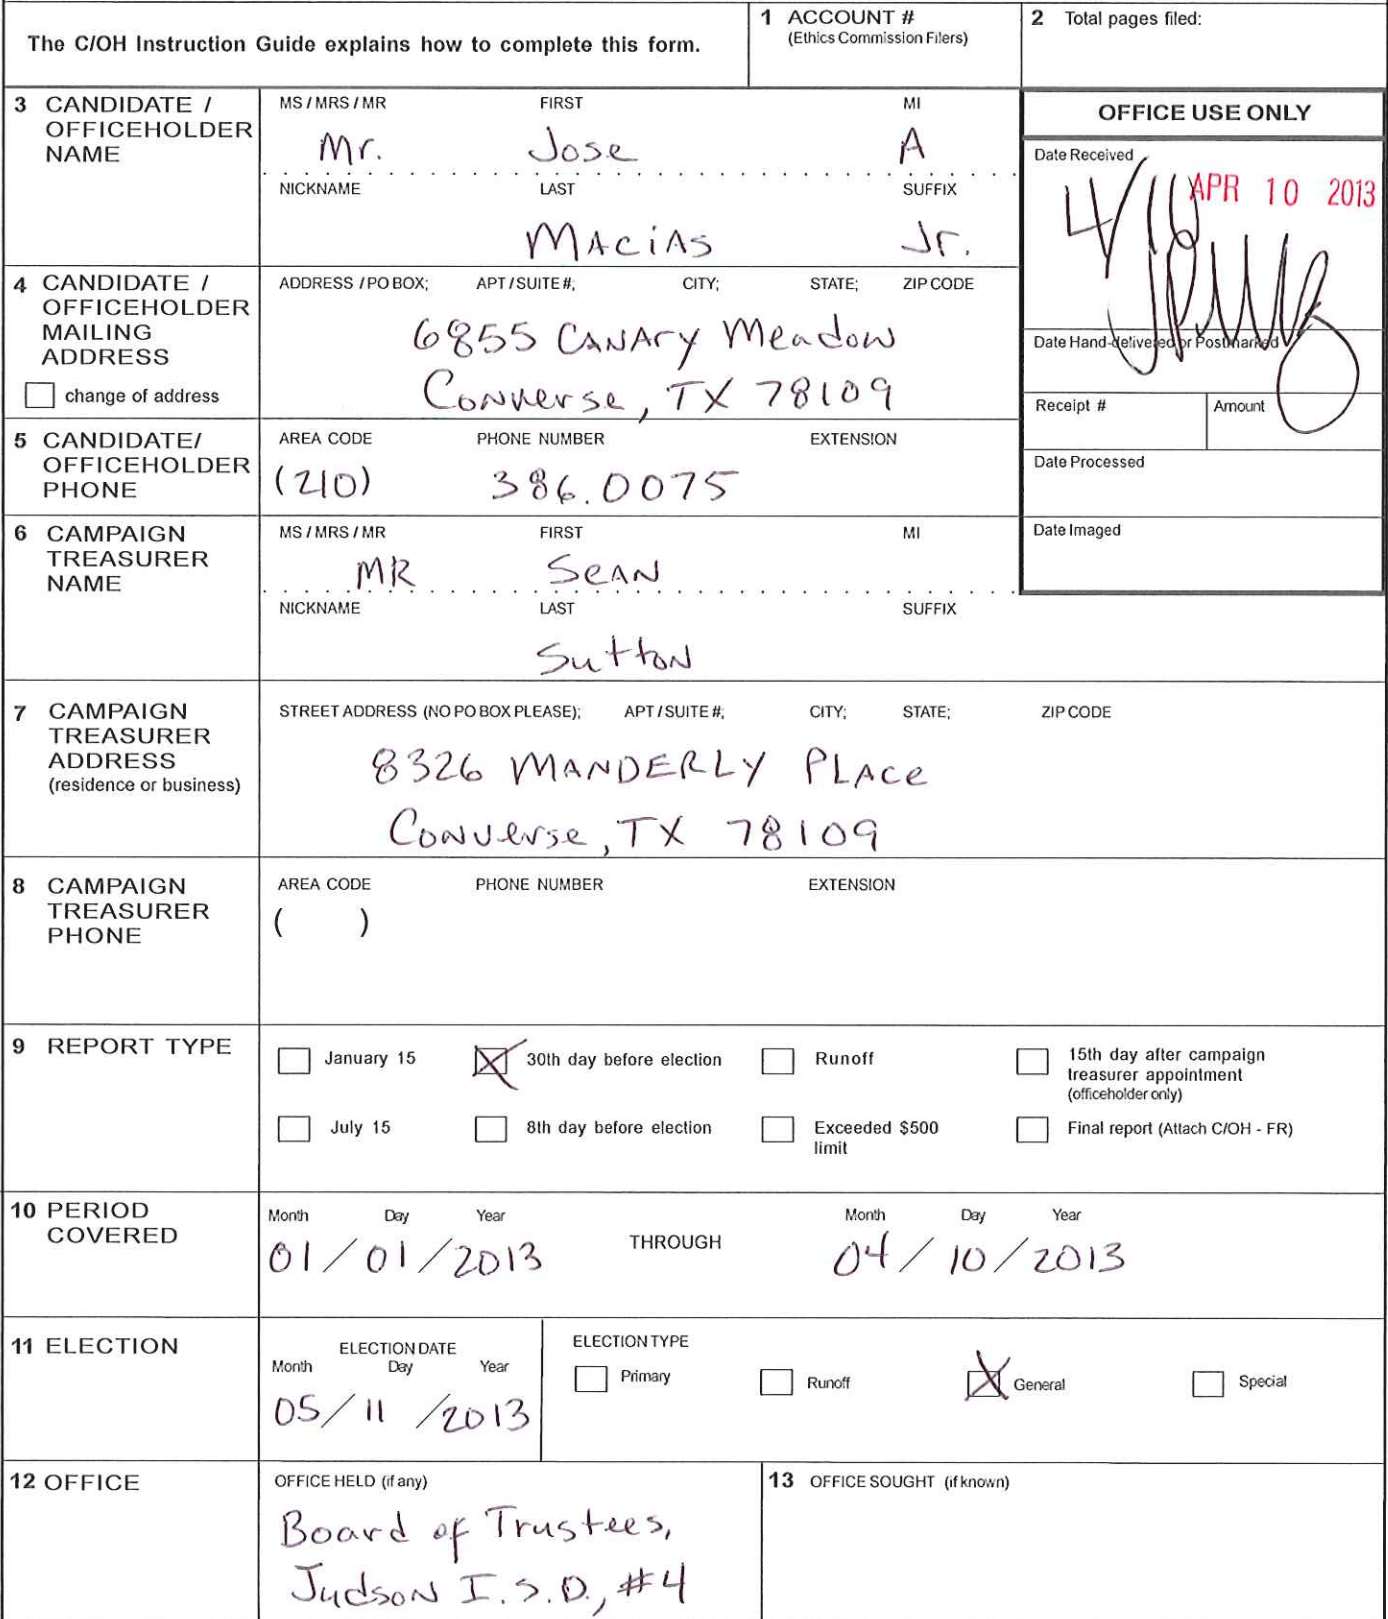 The C/OH Instruction Guide explains how to complete this form.
1 ACCOUNT #
(Ethics Commission Filers)
2 Total pages filed:
3 CANDIDATE /
OFFICEHOLDER
NAME
MS / MRS / MR FIRST MI
Mr. Jose A
NICKNAME LAST SUFFIX
Macias Jr.
OFFICE USE ONLY
Date Received
APR 10 2013
Date Hand-delivered or Postmarked
Receipt # Amount
Date Processed
Date Imaged
4 CANDIDATE /
OFFICEHOLDER
MAILING
ADDRESS
change of address
ADDRESS / PO BOX; APT / SUITE #; CITY; STATE; ZIP CODE
6855 Canary Meadow
Converse, TX 78109
5 CANDIDATE/
OFFICEHOLDER
PHONE
AREA CODE PHONE NUMBER EXTENSION
(210) 386.0075
6 CAMPAIGN
TREASURER
NAME
MS / MRS / MR FIRST MI
MR Sean
NICKNAME LAST SUFFIX
Sutton
7 CAMPAIGN
TREASURER
ADDRESS
(residence or business)
STREET ADDRESS (NO PO BOX PLEASE); APT / SUITE #; CITY; STATE; ZIP CODE
8326 MANDERLY PLACE
Converse, TX 78109
8 CAMPAIGN
TREASURER
PHONE
AREA CODE PHONE NUMBER EXTENSION
( )
9 REPORT TYPE
January 15 30th day before election Runoff 15th day after campaign
treasurer appointment
(officeholder only)
July 15 8th day before election Exceeded $500
limit
Final report (Attach C/OH - FR)
10 PERIOD
COVERED
Month Day Year
01 / 01 / 2013
THROUGH
Month Day Year
04 / 10 / 2013
11 ELECTION
ELECTION DATE
Month Day Year
05 / 11 / 2013
ELECTION TYPE
Primary Runoff General Special
12 OFFICE
OFFICE HELD (if any)
Board of Trustees,
Judson I.S.D., #4
13 OFFICE SOUGHT (if known)